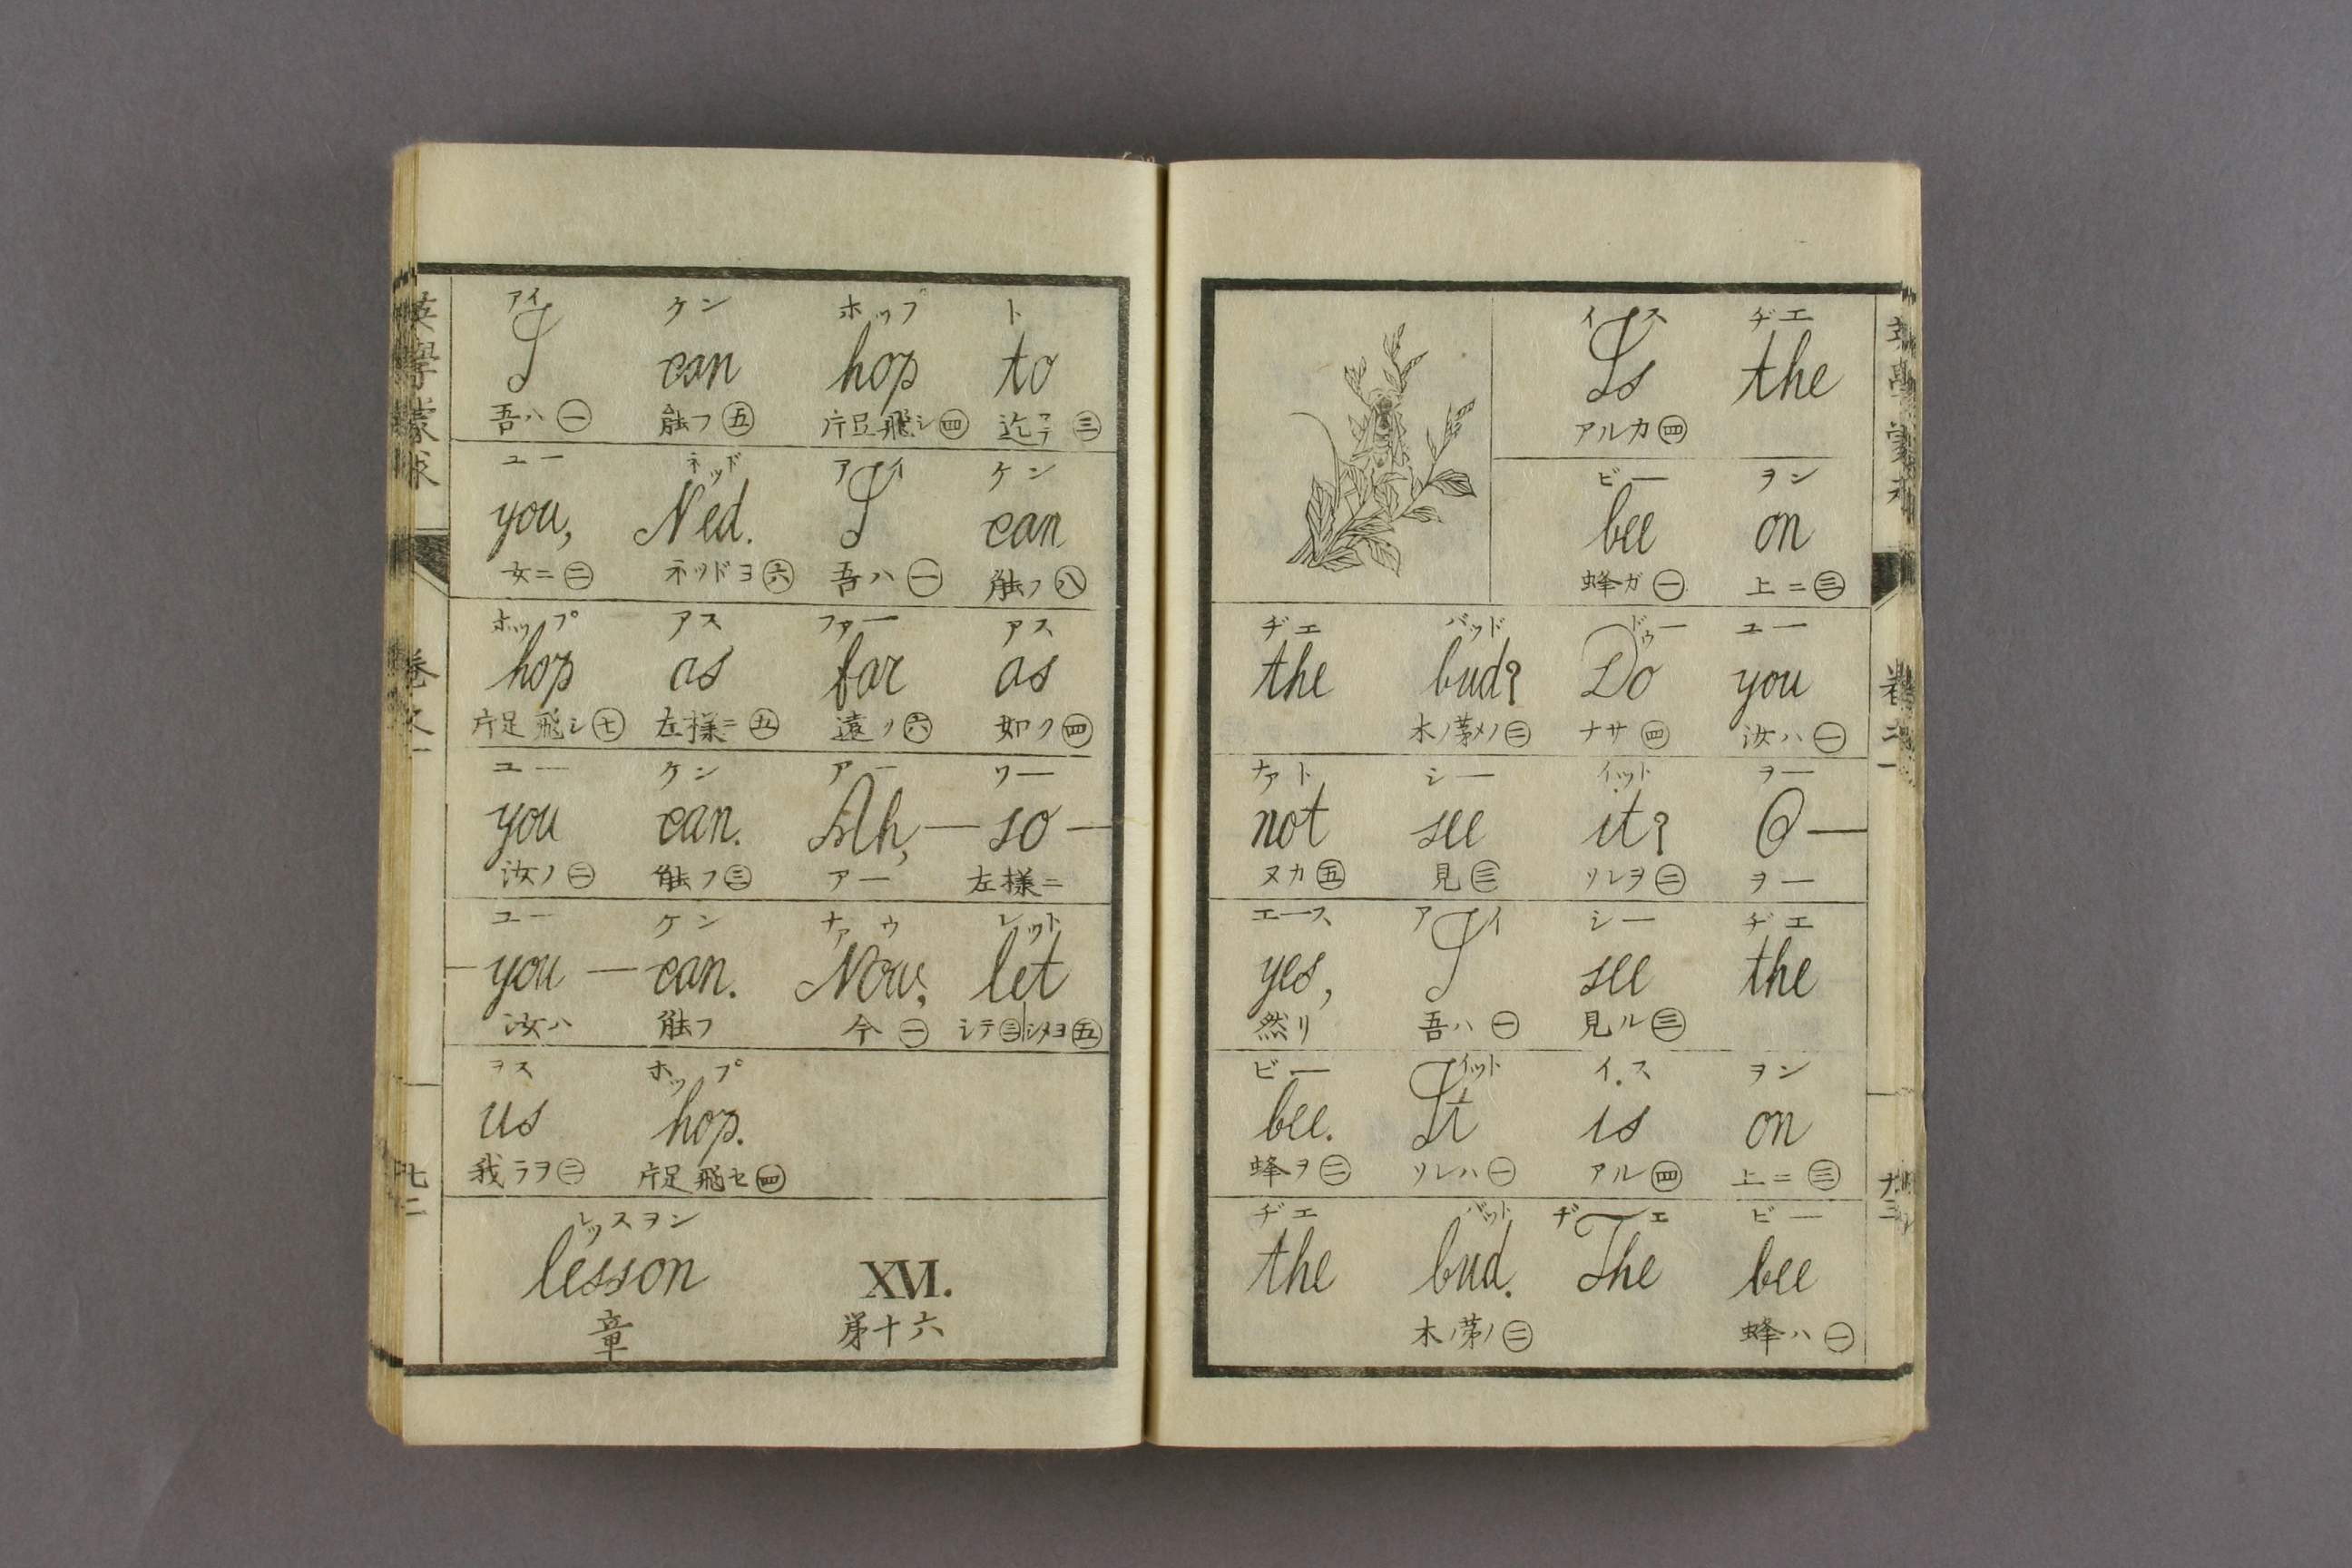 アイ ケン ホップ ト
I can hop to
吾ハ㊀ 能フ㊄ 片足飛シ㊃ 迄マテ㊂
ユー ネッド アイ ケン
you, Ned. I can
女ニ㊁ ネッドヨ㊅ 吾ハ㊀ 能フ㊇
ホップ アス ファー アス
hop as far as
片足飛シ㊆ 左様ニ㊄ 遠ク㊅ 如ク㊃
ユー ケン アー ソー
you can. Ah,— so —
汝ノ㊁ 能フ㊂ アー 左様ニ
ユー ケン ナァウ レット
— you — can. Now, let
汝ハ 能フ 今㊀ シテ㊂シメヨ㊄
ヲス ホップ
us hop.
我ラヲ㊁ 片足飛セ㊃
レッスヲン
lesson XVI.
章 第十六
英學蒙求
巻之一
イス ヂエ
Is the
アルカ㊃
ビー ヲン
bee on
蜂ガ㊀ 上ニ㊂
ヂエ バッド ドゥー ユー
the bud? Do you
木ノ芽ノ㊁ ナサ㊃ 汝ハ㊀
ナァト シー イット ヲー
not see it? O—
ヌカ㊄ 見㊂ ソレヲ㊁ ヲー
エース アイ シー ヂエ
yes, I see the
然リ 吾ハ㊀ 見ル㊂
ビー イット イス ヲン
bee. It is on
蜂ヲ㊁ ソレハ㊀ アル㊃ 上ニ㊂
ヂエ バット ヂエ ビー
the bud. The bee
木ノ芽ノ㊁ 蜂ハ㊀